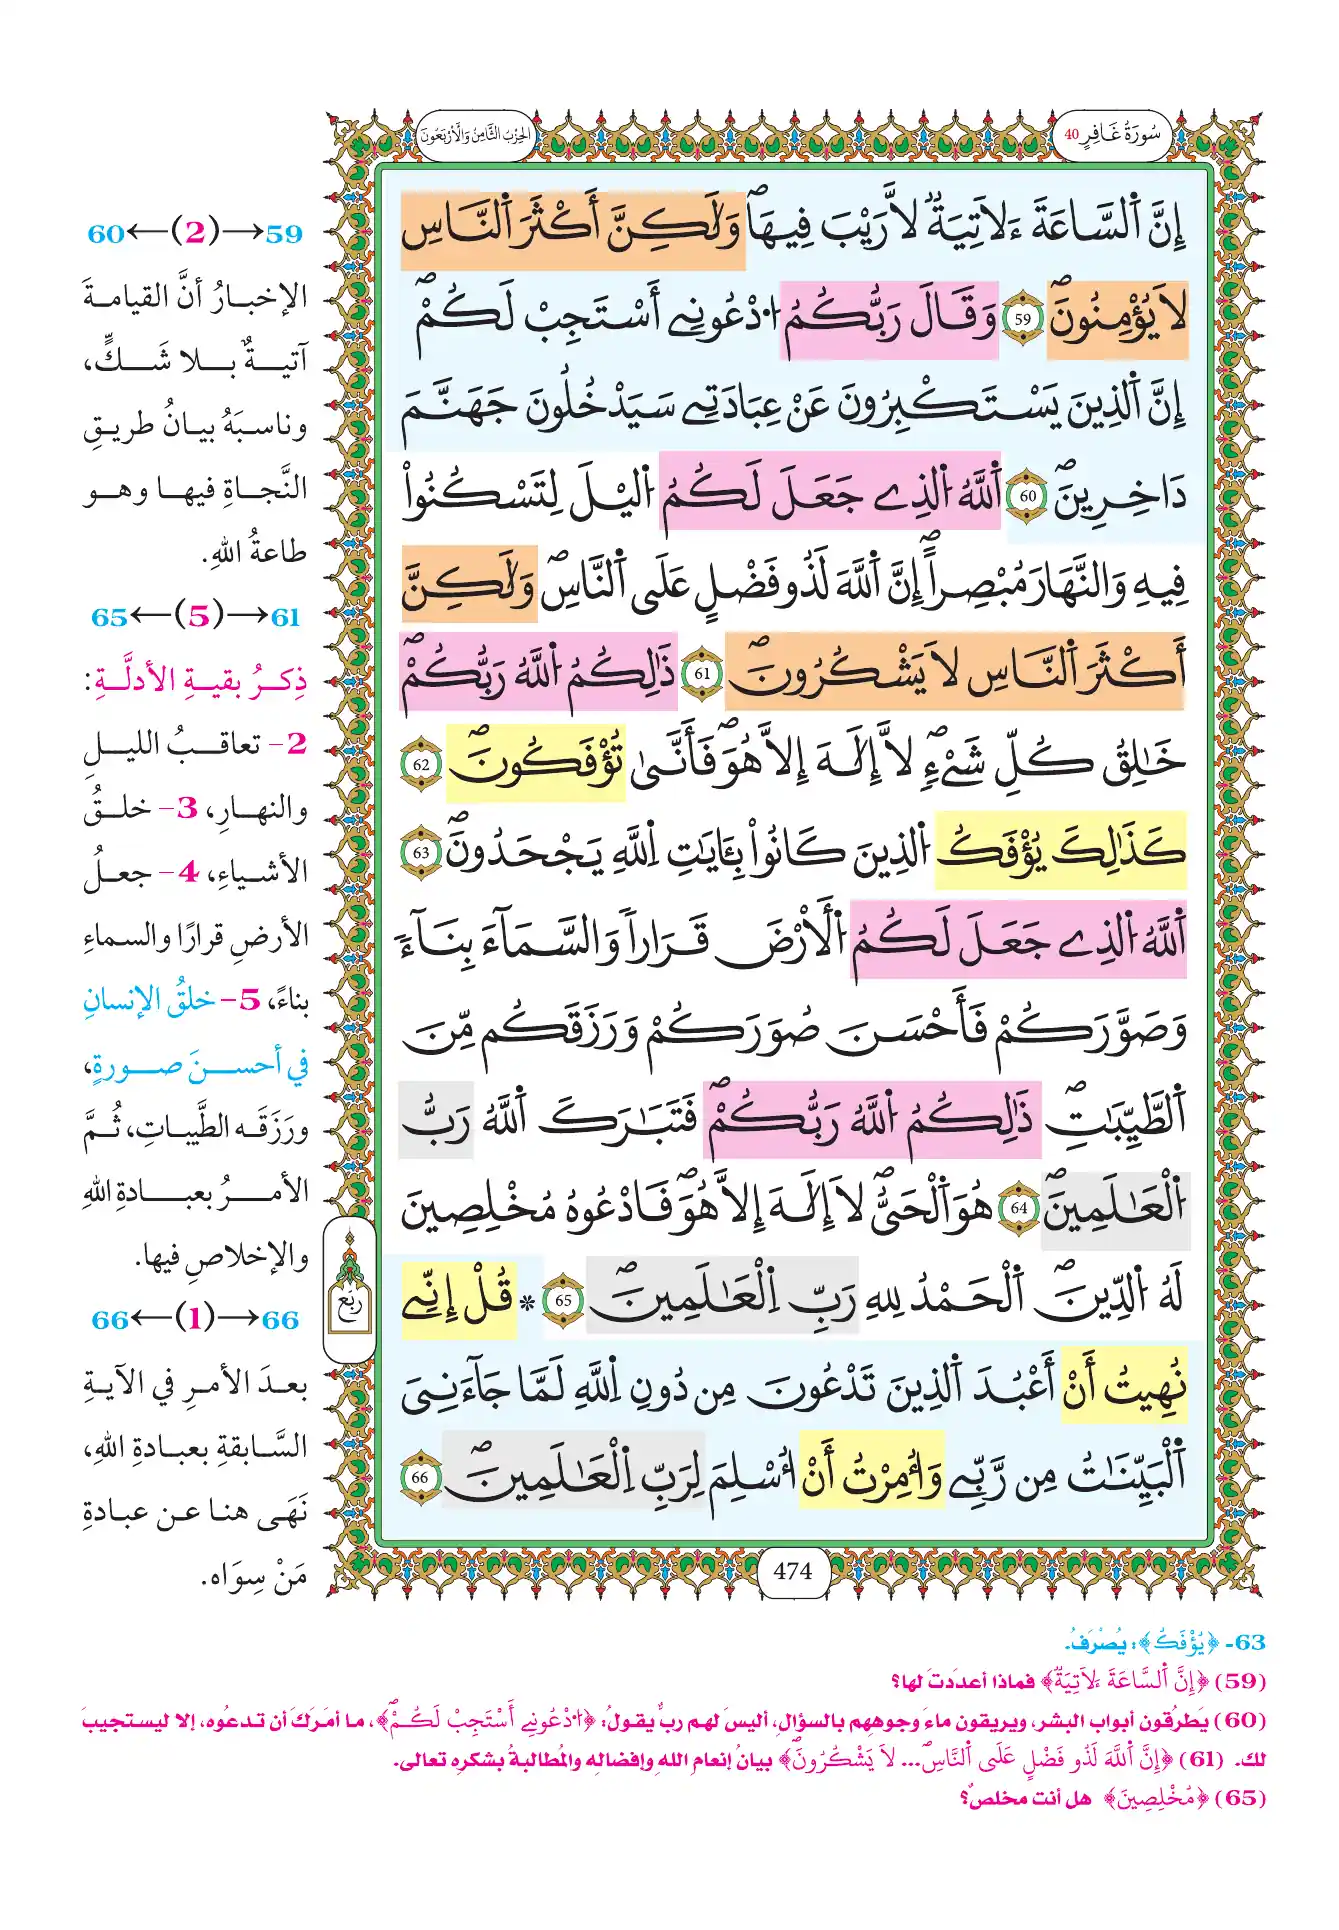 سُورَةُ غَافِرٍ 40
الحِزْبُ الثَّامِنُ وَالأَرْبَعُونَ
إِنَّ اَ۬لسَّاعَةَ ءَلَاتِيَةٞ لَّا رَيْبَ فِيهَاۖ وَلَٰكِنَّ أَكْثَرَ اَ۬لنَّاسِ
لَا يُؤْمِنُونَۖ 59 وَقَالَ رَبُّكُمُ اُ۟دْعُونِے أَسْتَجِبْ لَكُمْۖ
إِنَّ اَ۬لذِينَ يَسْتَكْبِرُونَ عَنْ عِبَادَتِے سَيَدْخُلُونَ جَهَنَّمَ
دَاخِرِينَۖ 60 اَ۬للَّهُ اُ۬لذِے جَعَلَ لَكُمُ اُ۬ليْلَ لِتَسْكُنُواْ
فِيهِ وَالنَّهَارَ مُبْصِراًۖ إِنَّ اَ۬للَّهَ لَذُو فَضْلٍ عَلَى اَ۬لنَّاسِۖ وَلَٰكِنَّ
أَكْثَرَ اَ۬لنَّاسِ لَا يَشْكُرُونَۖ 61 ذَٰلِكُمُ اُ۬للَّهُ رَبُّكُمْۖ
خَٰلِقُ كُلِّ شَےْءٖۖ لَّا إِلَٰهَ إِلَّا هُوَۖ فَأَنَّىٰ تُؤْفَكُونَۖ 62
كَذَٰلِكَ يُؤْفَكُ اُ۬لذِينَ كَانُواْ بِـَٔايَٰتِ اِ۬للَّهِ يَجْحَدُونَۖ 63
اَ۬للَّهُ اُ۬لذِے جَعَلَ لَكُمُ اُ۬لْأَرْضَ قَرَاراً وَالسَّمَآءَ بِنَآءٗ
وَصَوَّرَكُمْ فَأَحْسَنَ صُوَرَكُمْ وَرَزَقَكُم مِّنَ
اَ۬لطَّيِّبَٰتِۖ ذَٰلِكُمُ اُ۬للَّهُ رَبُّكُمْۖ فَتَبَٰرَكَ اَ۬للَّهُ رَبُّ
اُ۬لْعَٰلَمِينَۖ 64 هُوَ اَ۬لْحَيُّ لَا إِلَٰهَ إِلَّا هُوَۖ فَادْعُوهُ مُخْلِصِينَ
لَهُ اُ۬لدِّينَۖ اَ۬لْحَمْدُ لِلهِ رَبِّ اِ۬لْعَٰلَمِينَۖ 65 * قُلْ إِنِّے
نُهِيتُ أَنْ أَعْبُدَ اَ۬لذِينَ تَدْعُونَ مِن دُونِ اِ۬للَّهِ لَمَّا جَآءَنِيَ
اَ۬لْبَيِّنَٰتُ مِن رَّبِّے وَأُمِرْتُ أَنْ أُسْلِمَ لِرَبِّ اِ۬لْعَٰلَمِينَۖ 66
رُبُع
474
59→(2)←60
الإخبارُ أنَّ القيامةَ
آتيةٌ بلا شَكٍّ،
وناسبَهُ بيانُ طريقِ
النَّجاةِ فيها وهو
طاعةُ اللهِ.
61→(5)←65
ذِكرُ بقيةِ الأدلَّةِ:
2- تعاقبُ الليلِ
والنهارِ، 3- خلقُ
الأشياءِ، 4- جعلُ
الأرضِ قرارًا والسماءِ
بناءً، 5- خلقُ الإنسانِ
في أحسنَ صورةٍ،
ورَزَقَه الطَّيباتِ، ثُمَّ
الأمرُ بعبادةِ اللهِ
والإخلاصِ فيها.
66→(1)←66
بعدَ الأمرِ في الآيةِ
السَّابقةِ بعبادةِ اللهِ،
نَهَى هنا عن عبادةِ
مَنْ سِوَاه.
63- ﴿يُؤْفَكُ﴾: يُصْرَفُ.
(59) ﴿إِنَّ اَ۬لسَّاعَةَ ءَلَاتِيَةٞ﴾ فماذا أعددتَ لها؟
(60) يَطرقُون أبواب البشر، ويريقون ماءَ وجوههم بالسؤالِ، أليسَ لهم ربٌ يقولُ: ﴿اُ۟دْعُونِے أَسْتَجِبْ لَكُمْۖ﴾، ما أمَرَكَ أن تدعوُه، إلا ليستجيبَ
لك. (61) ﴿إِنَّ اَ۬للَّهَ لَذُو فَضْلٍ عَلَى اَ۬لنَّاسِۖ... لَا يَشْكُرُونَۖ﴾ بيانُ إنعامِ اللهِ وإفضالِه والمُطالبةُ بشكرِه تعالى.
(65) ﴿مُخْلِصِينَ﴾ هل أنت مخلصٌ؟